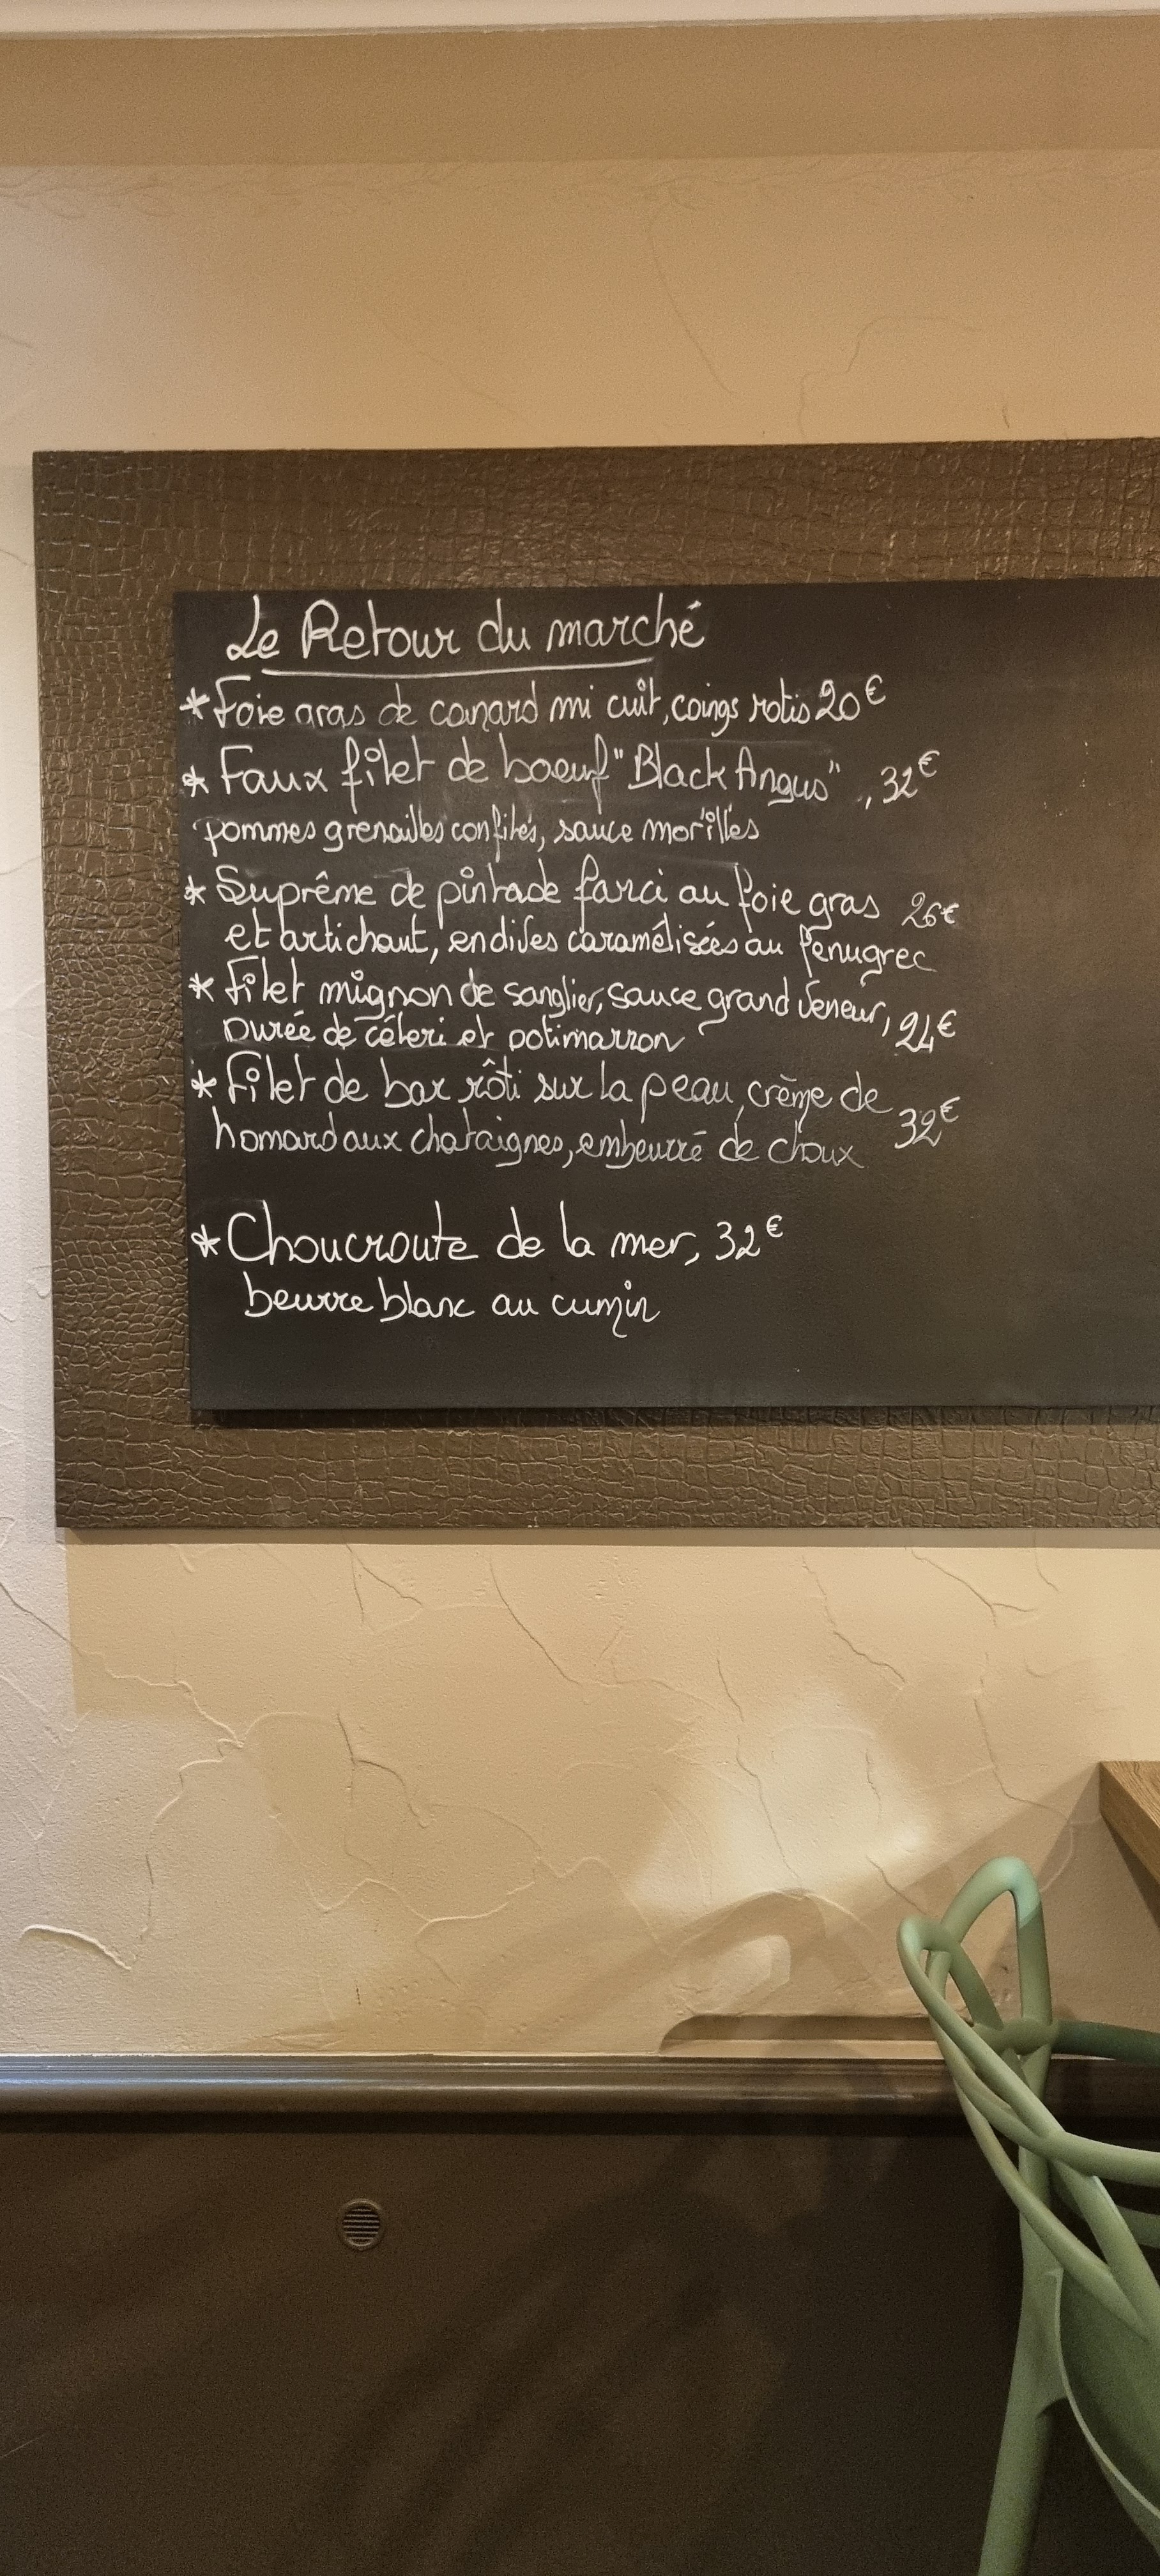 Le Retour du marché
* Foie gras de canard mi cuit, coings rotis 20€
* Faux filet de boeuf "Black Angus", 32€
pommes grenailles confites, sauce morilles
* Suprême de pintade farci au foie gras 26€
et artichaut, endives caramélisées au fenugrec
* Filet mignon de sanglier, sauce grand Veneur, 24€
purée de céleri et potimarron
* Filet de bar rôti sur la peau, crème de
homard aux chataignes, embeurré de choux 32€
* Choucroute de la mer, 32€
beurre blanc au cumin